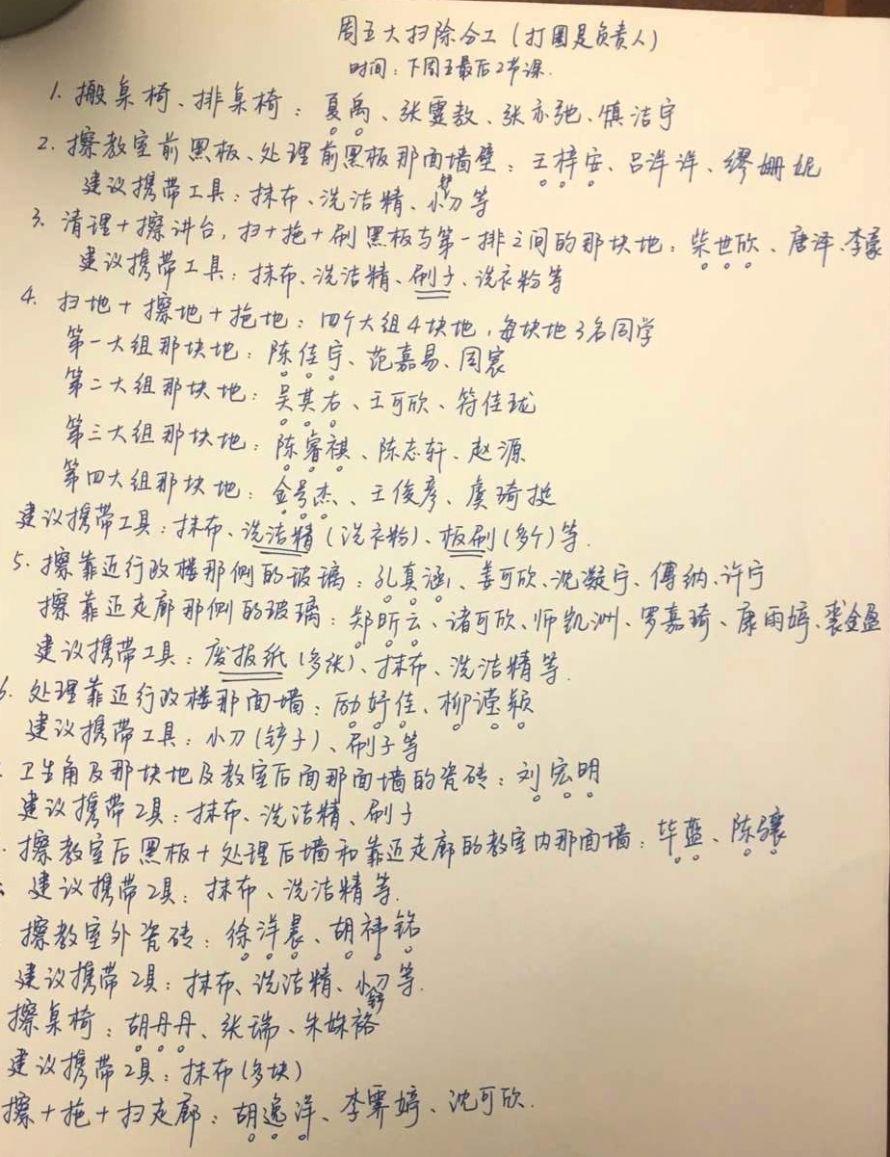 周五大扫除分工(打圈是负责人)
时间:下周五最后2节课.
1. 搬桌椅、排桌椅:夏禹、张雯教、张亦弛、慎洁宇
2. 擦教室前黑板、处理前黑板那面墙壁:王梓安、吕洋洋、缪姗妮
建议携带工具:抹布、洗洁精、小刀等
3. 清理+擦讲台,扫+拖+刷黑板与第一排之间的那块地:柴世欣、唐泽、李豪
建议携带工具:抹布、洗洁精、刷子、洗衣粉等
4. 扫地+擦地+拖地:四个大组4块地,每块地3名同学
第一大组那块地:陈佳宇、范嘉易、周宸
第二大组那块地:吴其右、王可欣、符佳珑
第三大组那块地:陈睿祺、陈志轩、赵源
第四大组那块地:金号杰、王俊彦、虞琦挺
建议携带工具:抹布、洗洁精(洗衣粉)、板刷(多个)等.
5. 擦靠近行政楼那侧的玻璃:孔真涵、姜可欣、沈凝宁、傅纳、许宁
擦靠近走廊那侧的玻璃:郑昕云、诸可欣、师凯洲、罗嘉琦、康雨婷、裘金盈
建议携带工具:废报纸(多张)、抹布、洗洁精等.
6. 处理靠近行政楼那面墙:励妤佳、柳滢颖
建议携带工具:小刀(铲子)、刷子等
卫生角及那块地及教室后面那面墙的瓷砖:刘宏明
建议携带工具:抹布、洗洁精、刷子
擦教室后黑板+处理后墙和靠近走廊的教室内那面墙:毕蓝、陈骧
建议携带工具:抹布、洗洁精等.
擦教室外瓷砖:徐洋晨、胡祎铭
建议携带工具:抹布、洗洁精、小刀等.
擦桌椅:胡丹丹、张瑞、朱姝裕
建议携带工具:抹布(多块)
擦+拖+扫走廊:胡逸洋、李霁婷、沈可欣.